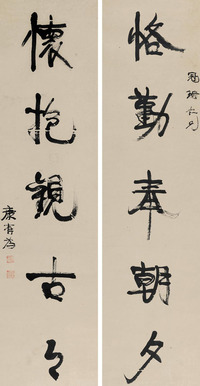 恪勤奉朝夕
懷抱觀古今
康有為